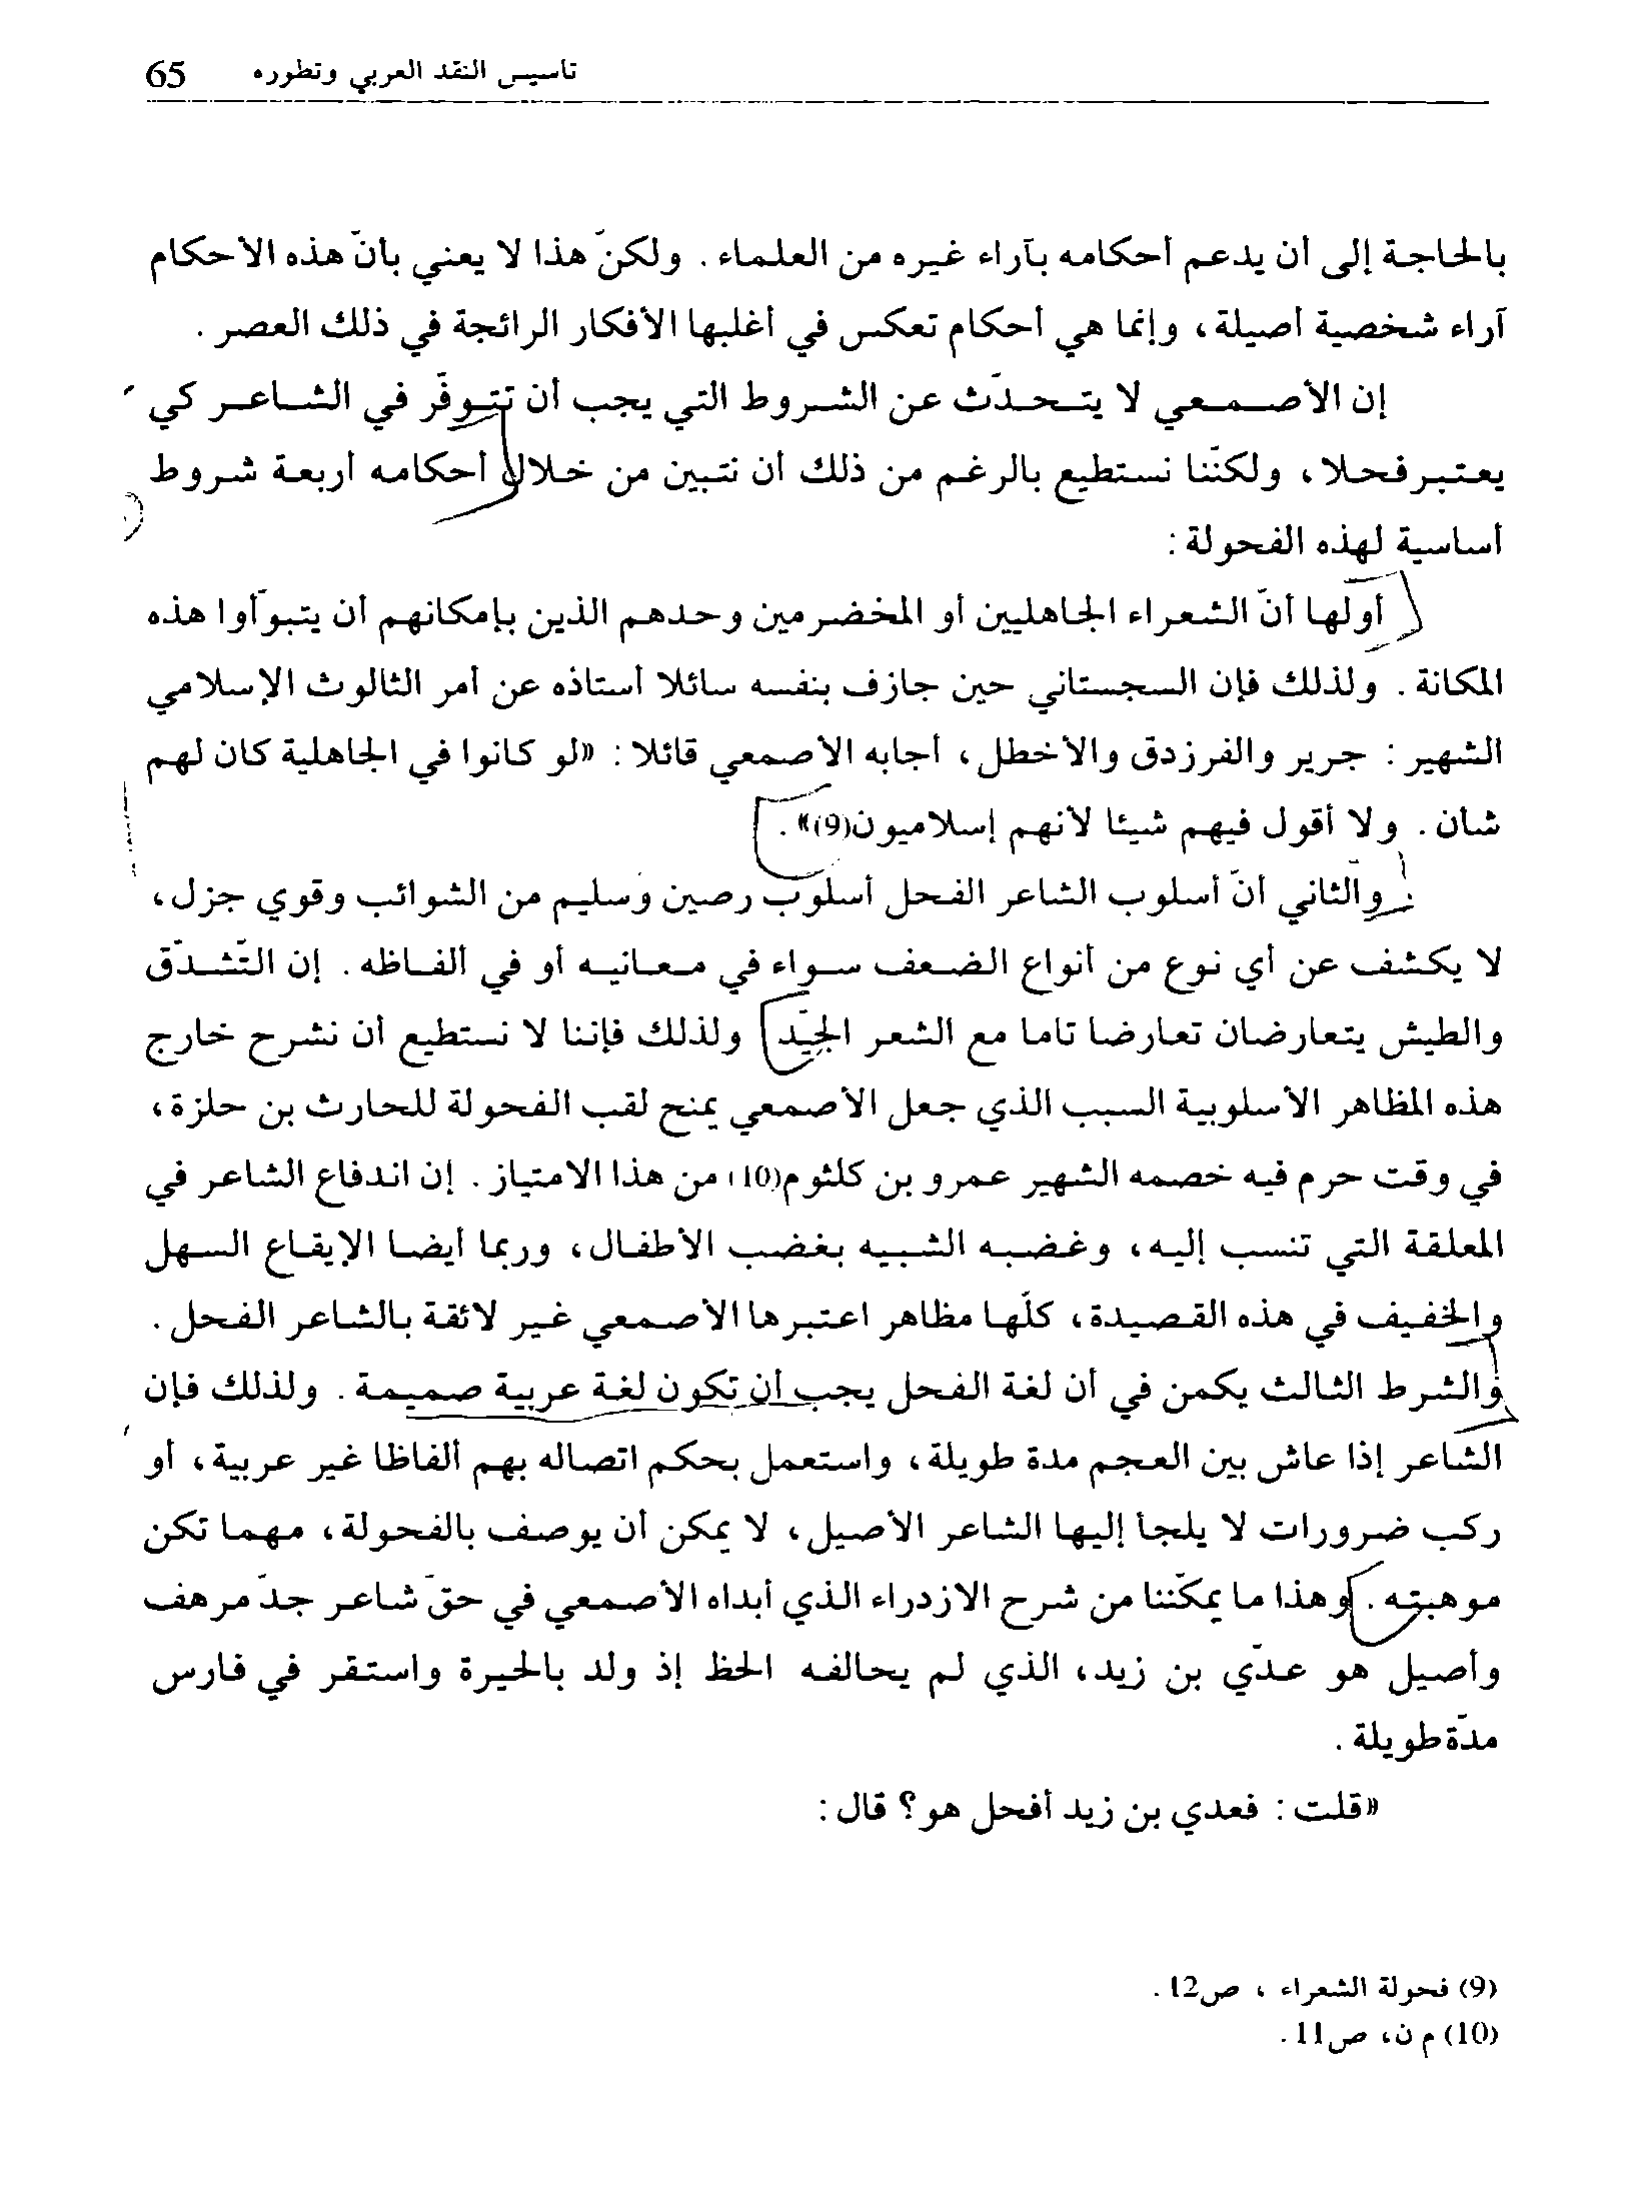 تأسيس النقد العربي وتطوره 65
بالحاجة إلى أن يدعم أحكامه بآراء غيره من العلماء . ولكنّ هذا لا يعني بأنّ هذه الأحكام
آراء شخصية أصيلة، وإنما هي أحكام تعكس في أغلبها الأفكار الرائجة في ذلك العصر .
إن الأصمعي لا يتحدّث عن الشروط التي يجب أن تتوفّر في الشاعر كي
يعتبر فحلا، ولكنّنا نستطيع بالرغم من ذلك أن نتبين من خلال أحكامه أربعة شروط
أساسية لهذه الفحولة :
أولها أنّ الشعراء الجاهليين أو المخضرمين وحدهم الذين بإمكانهم أن يتبوّأوا هذه
المكانة . ولذلك فإن السجستاني حين جازف بنفسه سائلا أستاذه عن أمر الثالوث الإسلامي
الشهير : جرير والفرزدق والأخطل، أجابه الأصمعي قائلا : «لو كانوا في الجاهلية كان لهم
شأن . ولا أقول فيهم شيئا لأنهم إسلاميون(9)» .
والثاني أنّ أسلوب الشاعر الفحل أسلوب رصين وسليم من الشوائب وقوي جزل،
لا يكشف عن أي نوع من أنواع الضعف سواء في معانيه أو في ألفاظه . إن التّشدّق
والطيش يتعارضان تعارضا تاما مع الشعر الجيّد ولذلك فإننا لا نستطيع أن نشرح خارج
هذه المظاهر الأسلوبية السبب الذي جعل الأصمعي يمنح لقب الفحولة للحارث بن حلزة،
في وقت حرم فيه خصمه الشهير عمرو بن كلثوم(10) من هذا الامتياز . إن اندفاع الشاعر في
المعلقة التي تنسب إليه، وغضبه الشبيه بغضب الأطفال، وربما أيضا الإيقاع السهل
والخفيف في هذه القصيدة، كلّها مظاهر اعتبرها الأصمعي غير لائقة بالشاعر الفحل .
والشرط الثالث يكمن في أن لغة الفحل يجب أن تكون لغة عربية صميمة . ولذلك فإن
الشاعر إذا عاش بين العجم مدة طويلة، واستعمل بحكم اتصاله بهم ألفاظا غير عربية، أو
ركب ضرورات لا يلجأ إليها الشاعر الأصيل، لا يمكن أن يوصف بالفحولة، مهما تكن
موهبته . وهذا ما يمكّننا من شرح الازدراء الذي أبداه الأصمعي في حقّ شاعر جدّ مرهف
وأصيل هو عدّي بن زيد، الذي لم يحالفه الحظ إذ ولد بالحيرة واستقر في فارس
مدّة طويلة .
«قلت : فعدي بن زيد أفحل هو ؟ قال :
(9) فحولة الشعراء ، ص12 .
(10) م ن، ص11 .